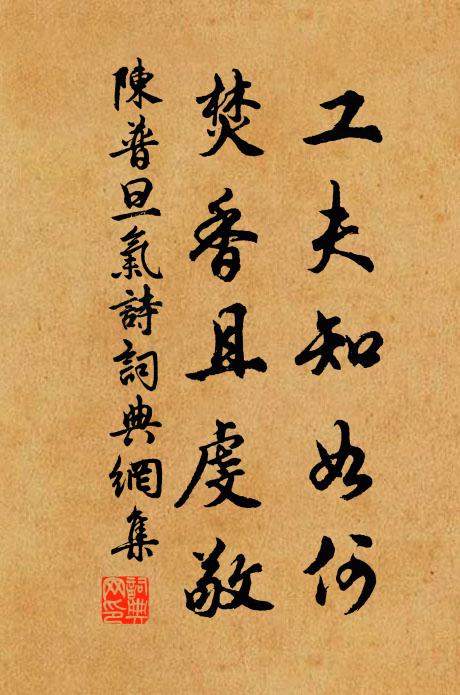 工夫知如何
焚香且虔敬
陳普旦氣詩詞典網集
詞典
网印